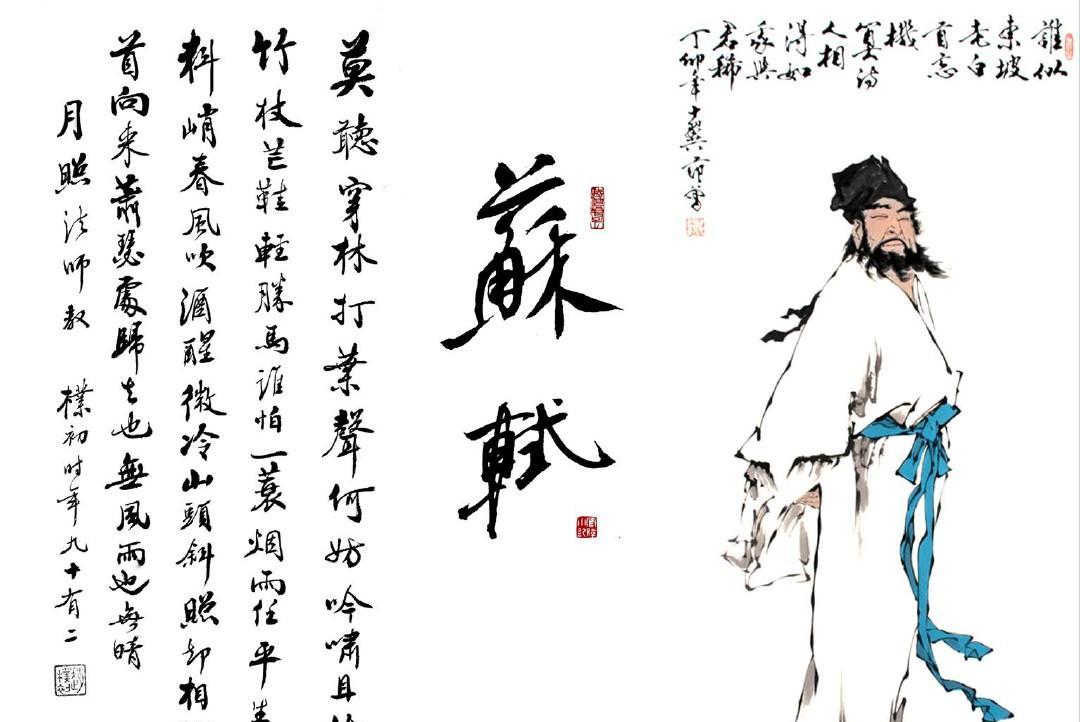 誰似
東坡
老白
首忘
機
算詩
人相
得如
我與
君稀
丁卯年十翼范曾
蘇軾
莫聽穿林打葉聲何妨吟嘯且
竹杖芒鞋輕勝馬誰怕一蓑烟雨任平生
料峭春風吹酒醒微冷山頭斜照却相
首向來蕭瑟處歸去也無風雨也無晴
月照法師教 樸初時年九十有二